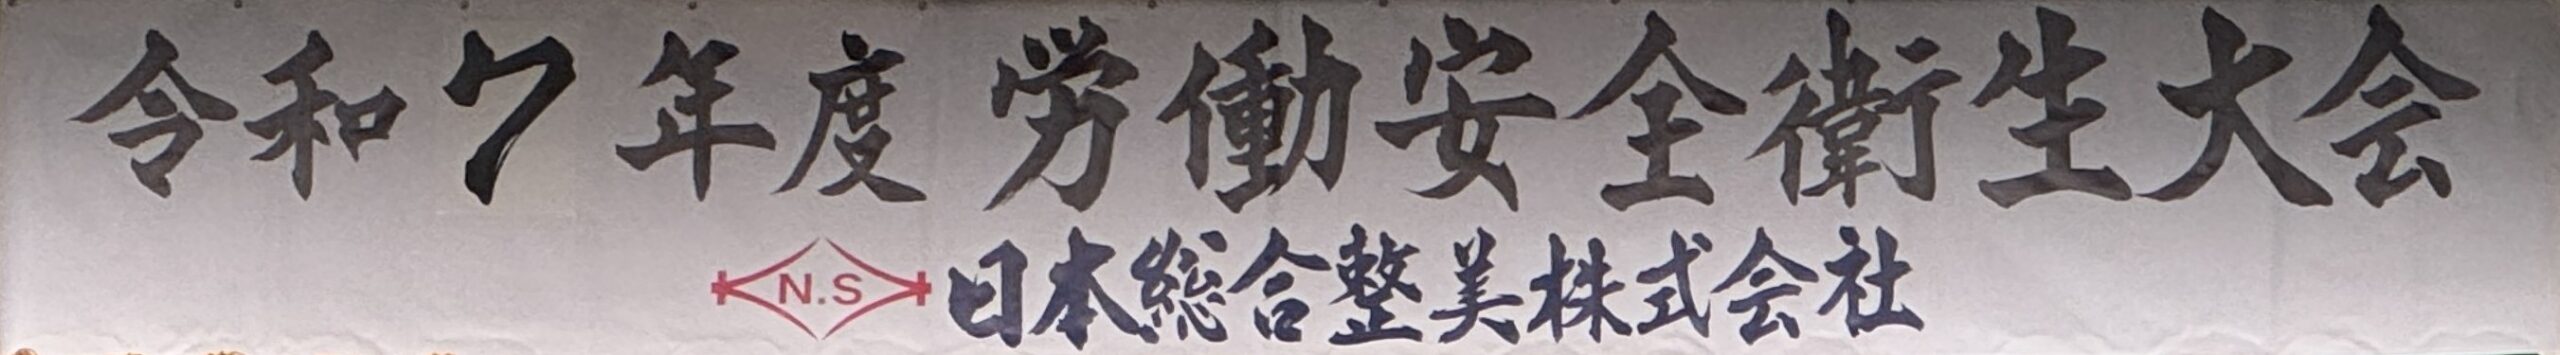 令和7年度 労働安全衛生大会
N.S 日本総合整美株式会社